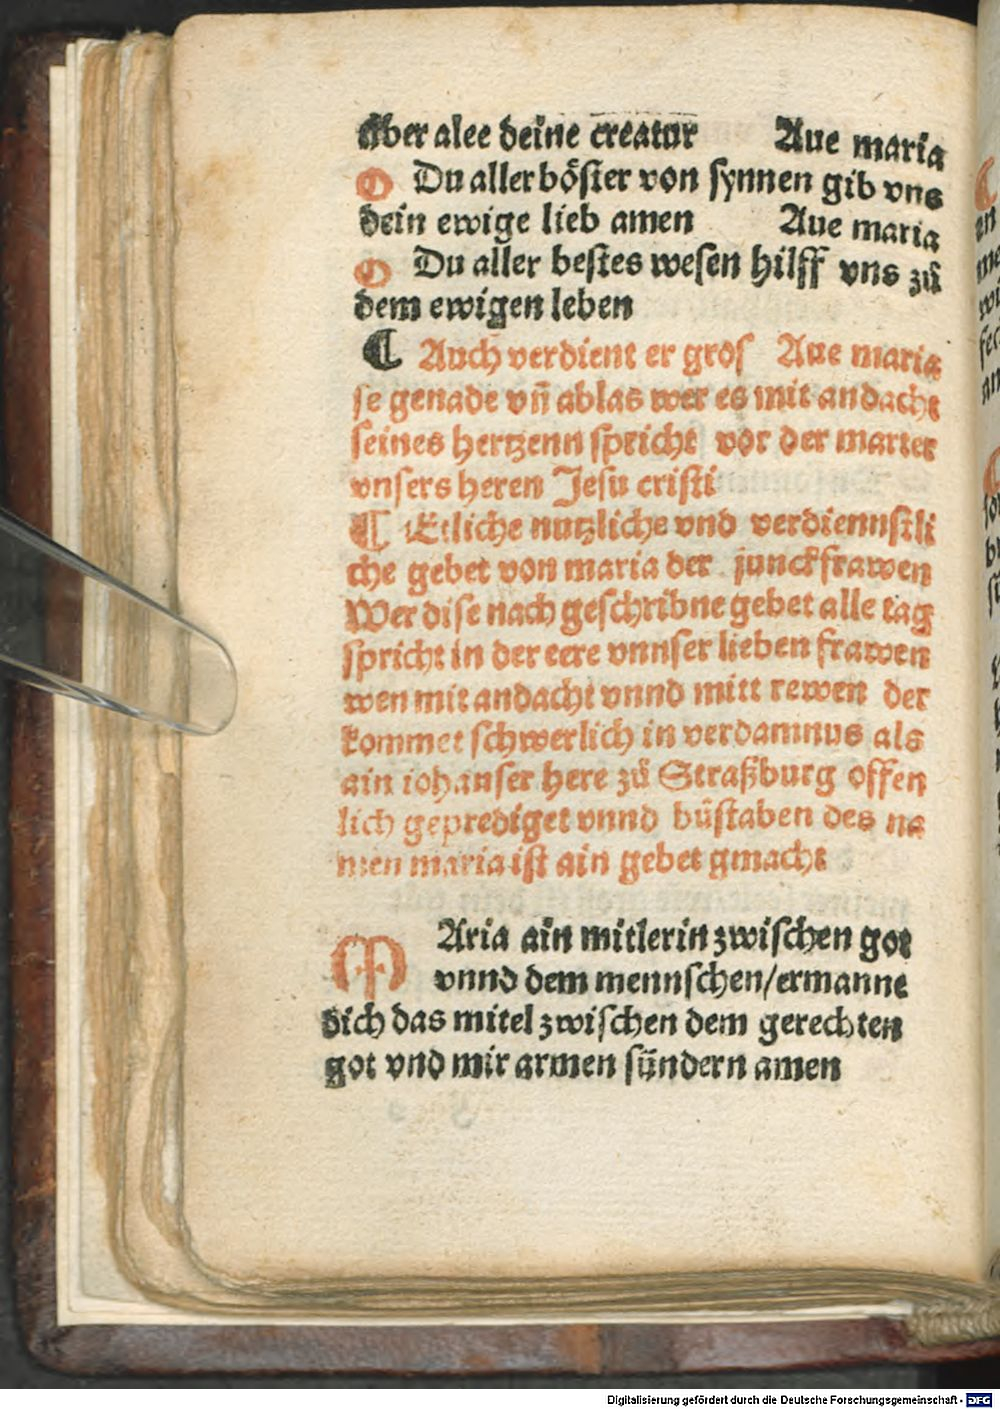 über alee deine creatur Aue maria
O Du aller böster von synnen gib vns
dein ewige lieb amen Aue maria
O Du aller bestes wesen hilff vns zů
dem ewigen leben
¶ Auch verdient er gros Aue maria
se genade vñ ablas wer es mit andacht
seines hertzenn spricht vor der marter
vnsers heren Jesu cristi
¶ Etliche nutzliche vnd verdiennstli
che gebet von maria der junckfrawen
Wer dise nach geschribne gebet alle tag
spricht in der eere vnnser lieben frawen
wen mit andacht vnnd mitt rewen der
kommet schwerlich in verdamnus als
ain iohanser here zů Straßburg offen
lich geprediget vnnd bůstaben des na
men maria ist ain gebet gmacht
MAria ain mitlerin zwischen got
vnnd dem mennschen/ermanne
dich das mitel zwischen dem gerechten
got vnd mir armen sündern amen
Digitalisierung gefördert durch die Deutsche Forschungsgemeinschaft - DFG